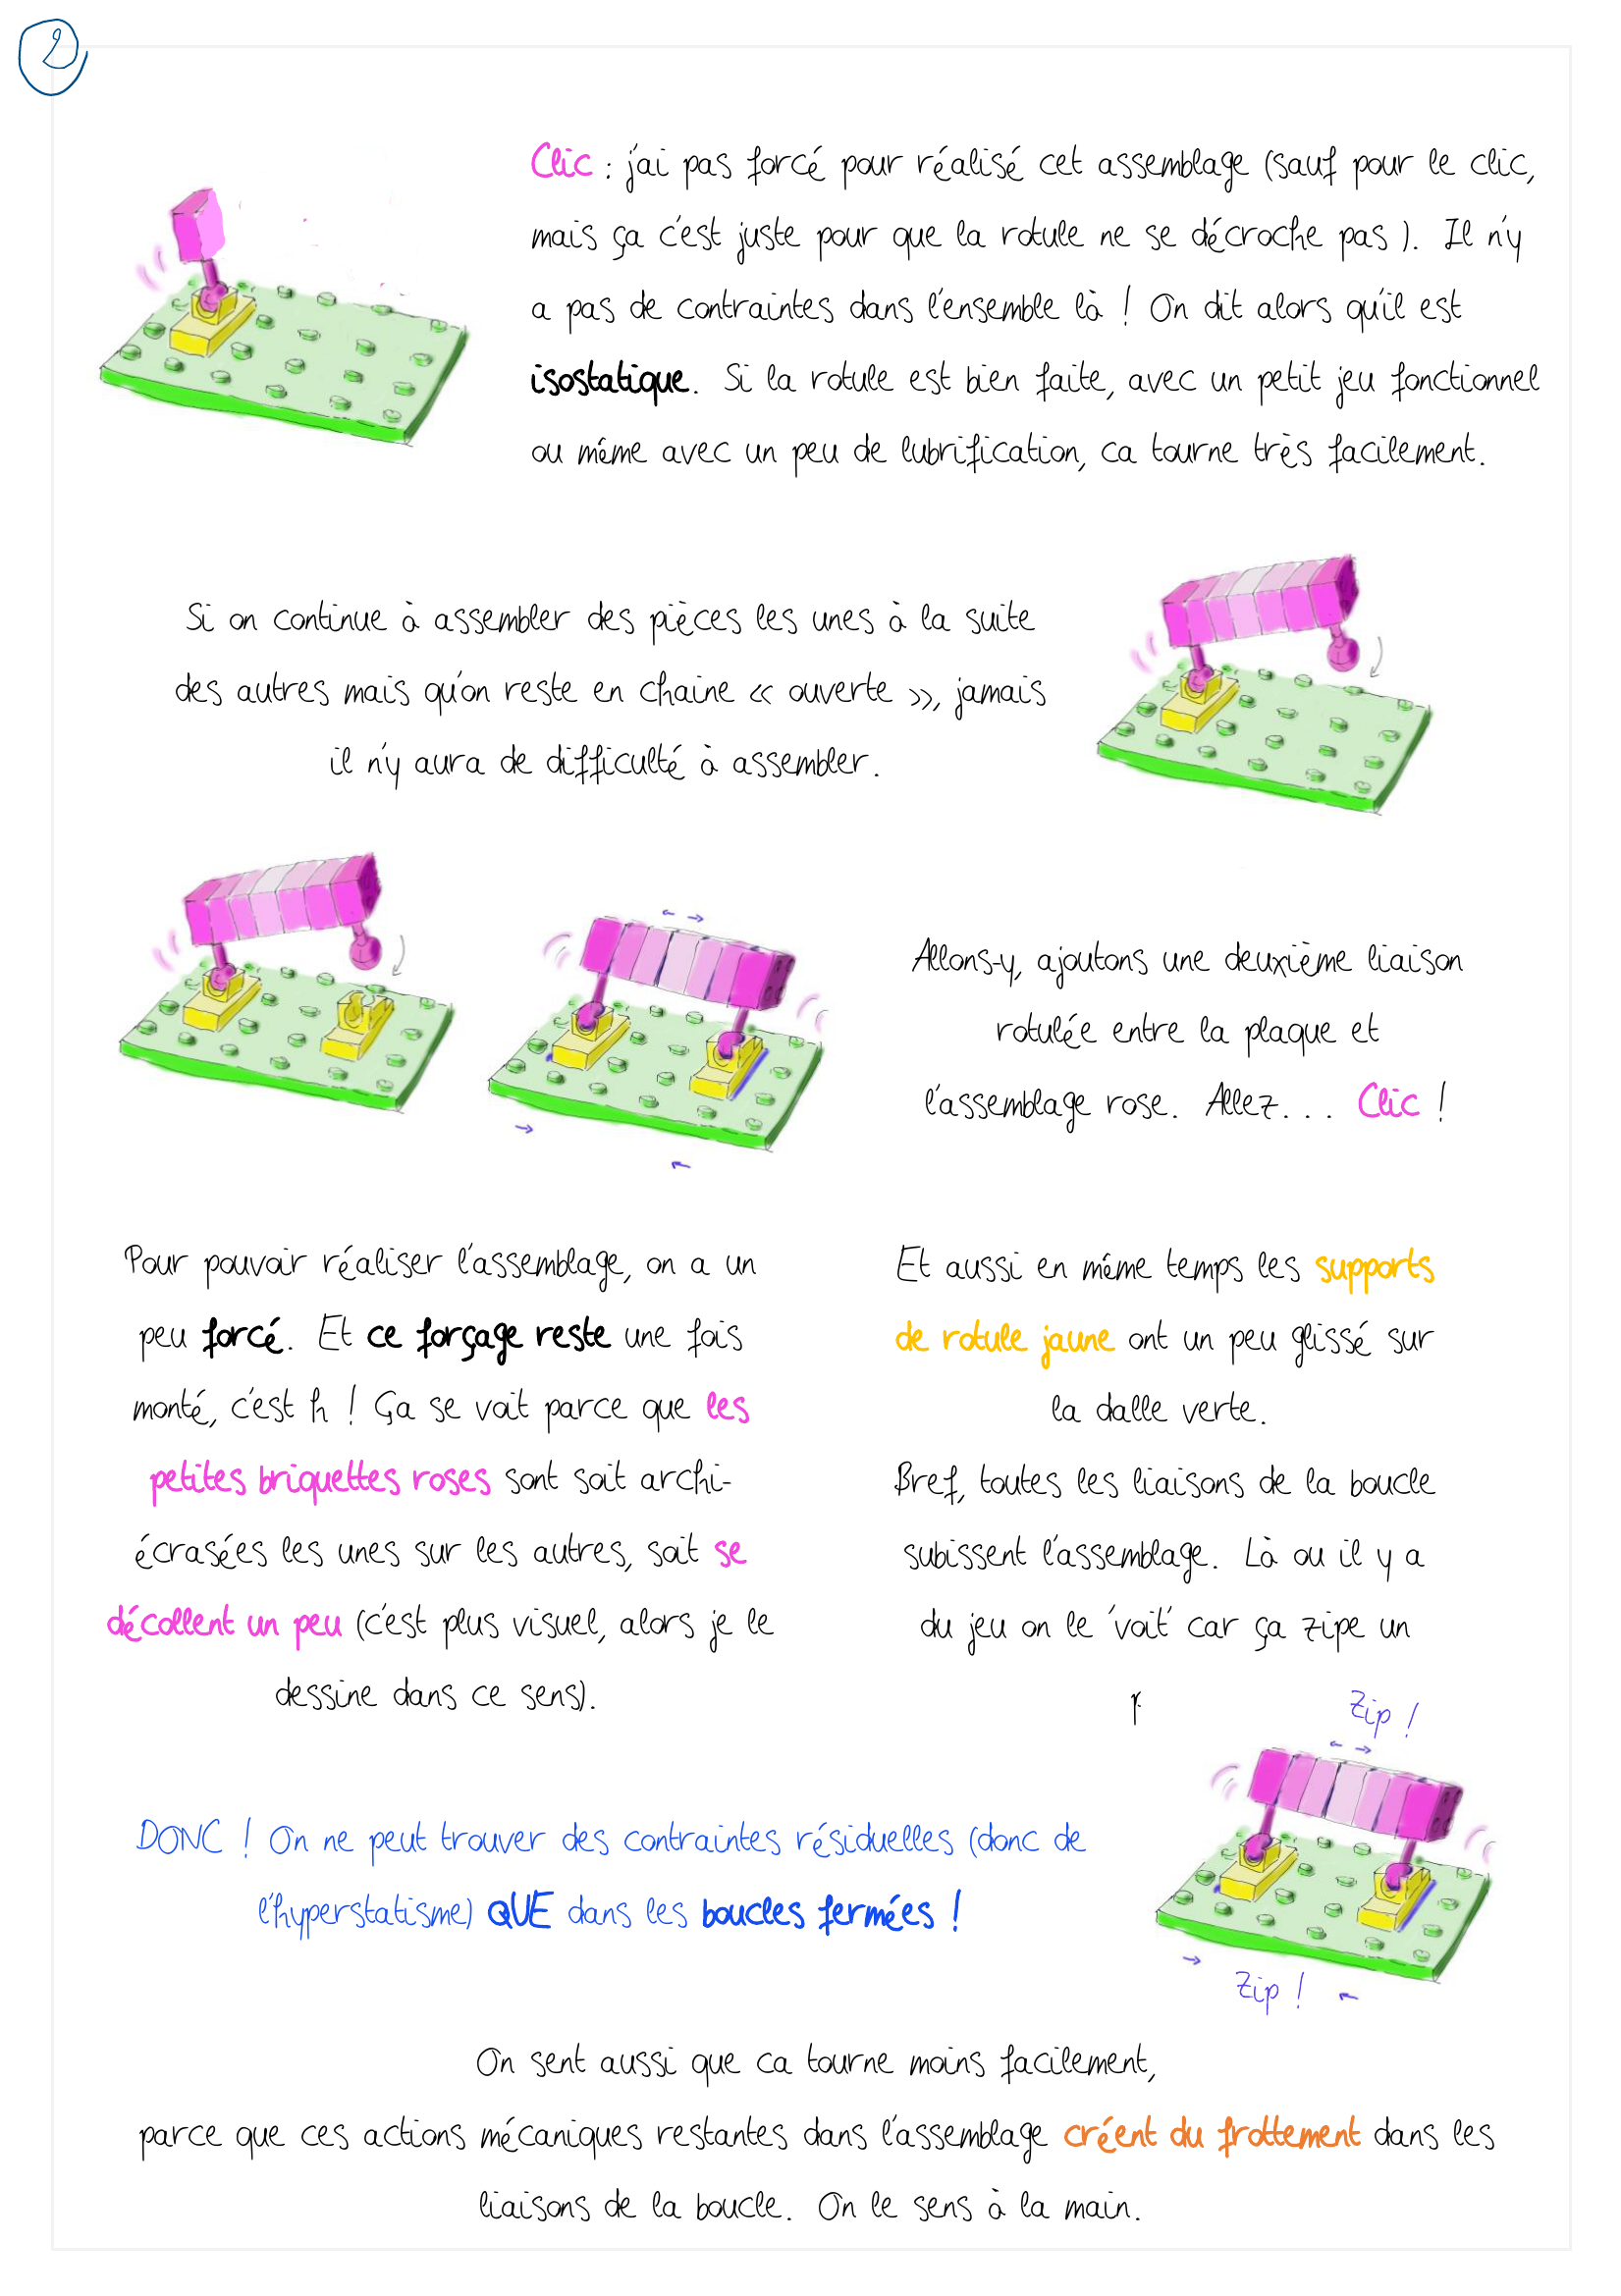 2
Clic : j'ai pas forcé pour réalisé cet assemblage (sauf pour le clic,
mais ça c'est juste pour que la rotule ne se décroche pas ). Il n'y
a pas de contraintes dans l'ensemble là ! On dit alors qu'il est
isostatique. Si la rotule est bien faite, avec un petit jeu fonctionnel
ou même avec un peu de lubrification, ca tourne très facilement.
Si on continue à assembler des pièces les unes à la suite
des autres mais qu'on reste en chaine « ouverte », jamais
il n'y aura de difficulté à assembler.
Allons-y, ajoutons une deuxième liaison
rotulée entre la plaque et
l'assemblage rose. Allez... Clic !
Pour pouvoir réaliser l'assemblage, on a un
peu forcé. Et ce forçage reste une fois
monté, c'est h ! Ça se voit parce que les
petites briquettes roses sont soit archi-
écrasées les unes sur les autres, soit se
décollent un peu (c'est plus visuel, alors je le
dessine dans ce sens).
Et aussi en même temps les supports
de rotule jaune ont un peu glissé sur
la dalle verte.
Bref, toutes les liaisons de la boucle
subissent l'assemblage. Là ou il y a
du jeu on le 'voit' car ça zipe un
Zip !
DONC ! On ne peut trouver des contraintes résiduelles (donc de
l'hyperstatisme) QUE dans les boucles fermées !
Zip !
On sent aussi que ca tourne moins facilement,
parce que ces actions mécaniques restantes dans l'assemblage créent du frottement dans les
liaisons de la boucle. On le sens à la main.